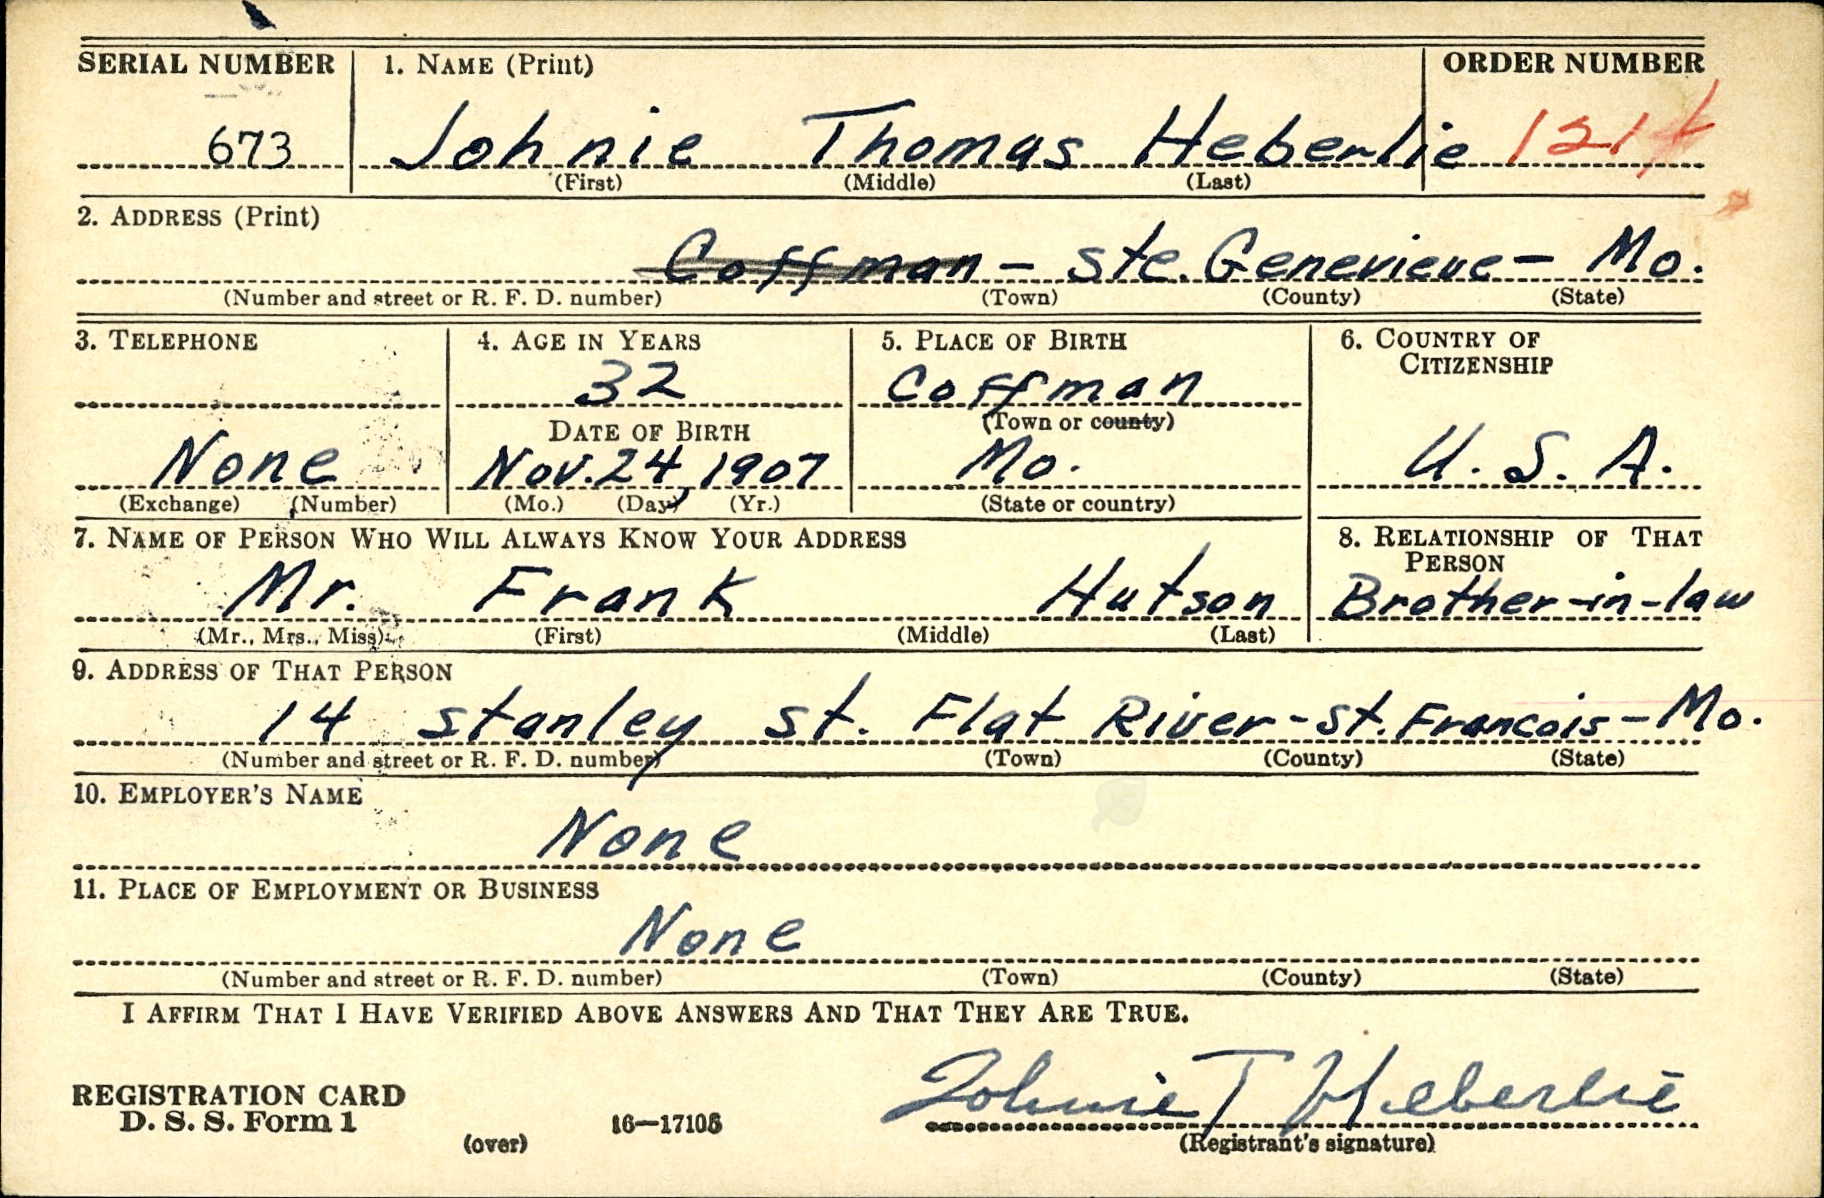 SERIAL NUMBER 1. NAME (Print) ORDER NUMBER
673 Johnie Thomas Heberlie 1214
(First) (Middle) (Last)
2. ADDRESS (Print)
Coffman - Ste. Genevieve - Mo.
(Number and street or R. F. D. number) (Town) (County) (State)
3. TELEPHONE 4. AGE IN YEARS 5. PLACE OF BIRTH 6. COUNTRY OF CITIZENSHIP
32 Coffman
DATE OF BIRTH (Town or county)
None Nov. 24, 1907 Mo. U. S. A.
(Exchange) (Number) (Mo.) (Day) (Yr.) (State or country)
7. NAME OF PERSON WHO WILL ALWAYS KNOW YOUR ADDRESS 8. RELATIONSHIP OF THAT PERSON
Mr. Frank Hutson Brother-in-law
(Mr., Mrs., Miss) (First) (Middle) (Last)
9. ADDRESS OF THAT PERSON
14 Stanley St. Flat River - St. Francois - Mo.
(Number and street or R. F. D. number) (Town) (County) (State)
10. EMPLOYER'S NAME
None
11. PLACE OF EMPLOYMENT OR BUSINESS
None
(Number and street or R. F. D. number) (Town) (County) (State)
I AFFIRM THAT I HAVE VERIFIED ABOVE ANSWERS AND THAT THEY ARE TRUE.
Johnie T Heberlie
REGISTRATION CARD
D. S. S. Form 1
(over) 16—17105 (Registrant's signature)